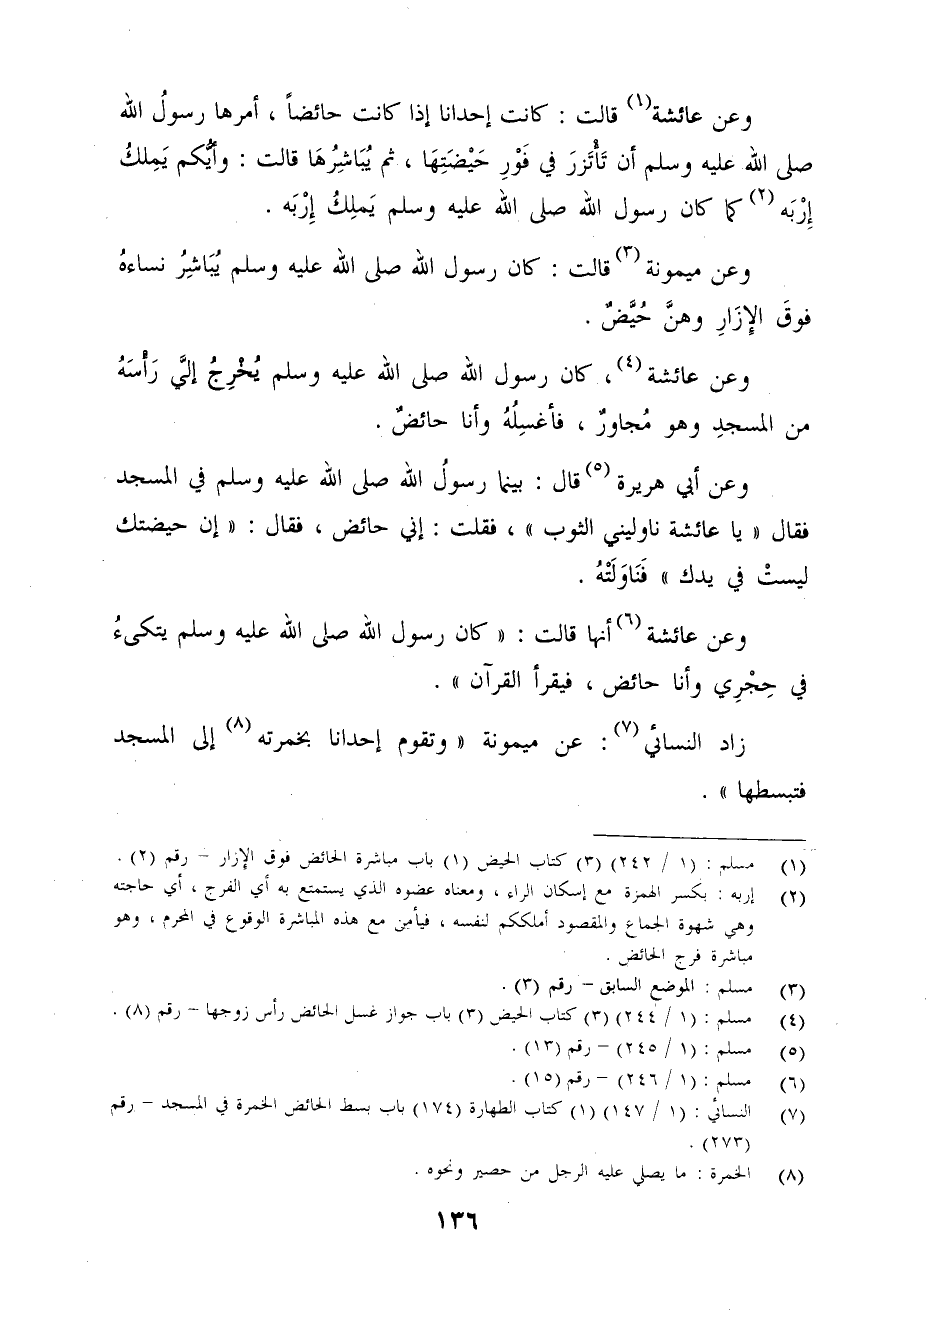 وعن عائشة(١) قالت : كانت إحدانا إذا كانت حائضاً ، أمرها رسولُ الله
صلى الله عليه وسلم أن تَأْتزرَ في فَوْرِ حَيْضَتِهَا ، ثم يُبَاشِرُهَا قالت : وأيُّكم يَمِلكُ
إِرْبَه(٢) كما كان رسول الله صلى الله عليه وسلم يَملِكُ إِرْبَه .
وعن ميمونة(٣) قالت : كان رسول الله صلى الله عليه وسلم يُبَاشِرُ نساءهُ
فوقَ الإِزَارِ وهنَّ حُيَّضٌ .
وعن عائشة(٤) ، كان رسول الله صلى الله عليه وسلم يُخْرِجُ إليَّ رَأْسَهُ
من المسجدِ وهو مُجاورٌ ، فأغسِلُهُ وأنا حائضٌ .
وعن أبي هريرة(٥) قال : بينما رسولُ الله صلى الله عليه وسلم في المسجد
فقال « يا عائشة ناوليني الثوب » ، فقلت : إني حائض ، فقال : « إن حيضتك
ليستْ في يدك » فَنَاوَلَتْهُ .
وعن عائشة(٦) أنها قالت : « كان رسول الله صلى الله عليه وسلم يتكىءُ
في حِجْرِي وأنا حائض ، فيقرأ القرآن » .
زاد النسائي(٧) : عن ميمونة « وتقوم إحدانا بخمرته(٨) إلى المسجد
فتبسطها » .
(١) مسلم : (١ / ٢٤٢) (٣) كتاب الحيض (١) باب مباشرة الحائض فوق الإزار – رقم (٢) .
(٢) إربه : بكسر الهمزة مع إسكان الراء ، ومعناه عضوه الذي يستمتع به أي الفرج ، أي حاجته
وهي شهوة الجماع والمقصود أملككم لنفسه ، فيأمن مع هذه المباشرة الوقوع في المحرم ، وهو
مباشرة فرج الحائض .
(٣) مسلم : الموضع السابق – رقم (٣) .
(٤) مسلم : (١ / ٢٤٤) (٣) كتاب الحيض (٣) باب جواز غسل الحائض رأس زوجها – رقم (٨) .
(٥) مسلم : (١ / ٢٤٥) – رقم (١٣) .
(٦) مسلم : (١ / ٢٤٦) – رقم (١٥) .
(٧) النسائي : (١ / ١٤٧) (١) كتاب الطهارة (١٧٤) باب بسط الحائض الخمرة في المسجد – رقم
(٢٧٣) .
(٨) الخمرة : ما يصلي عليه الرجل من حصير ونحوه .
١٣٦